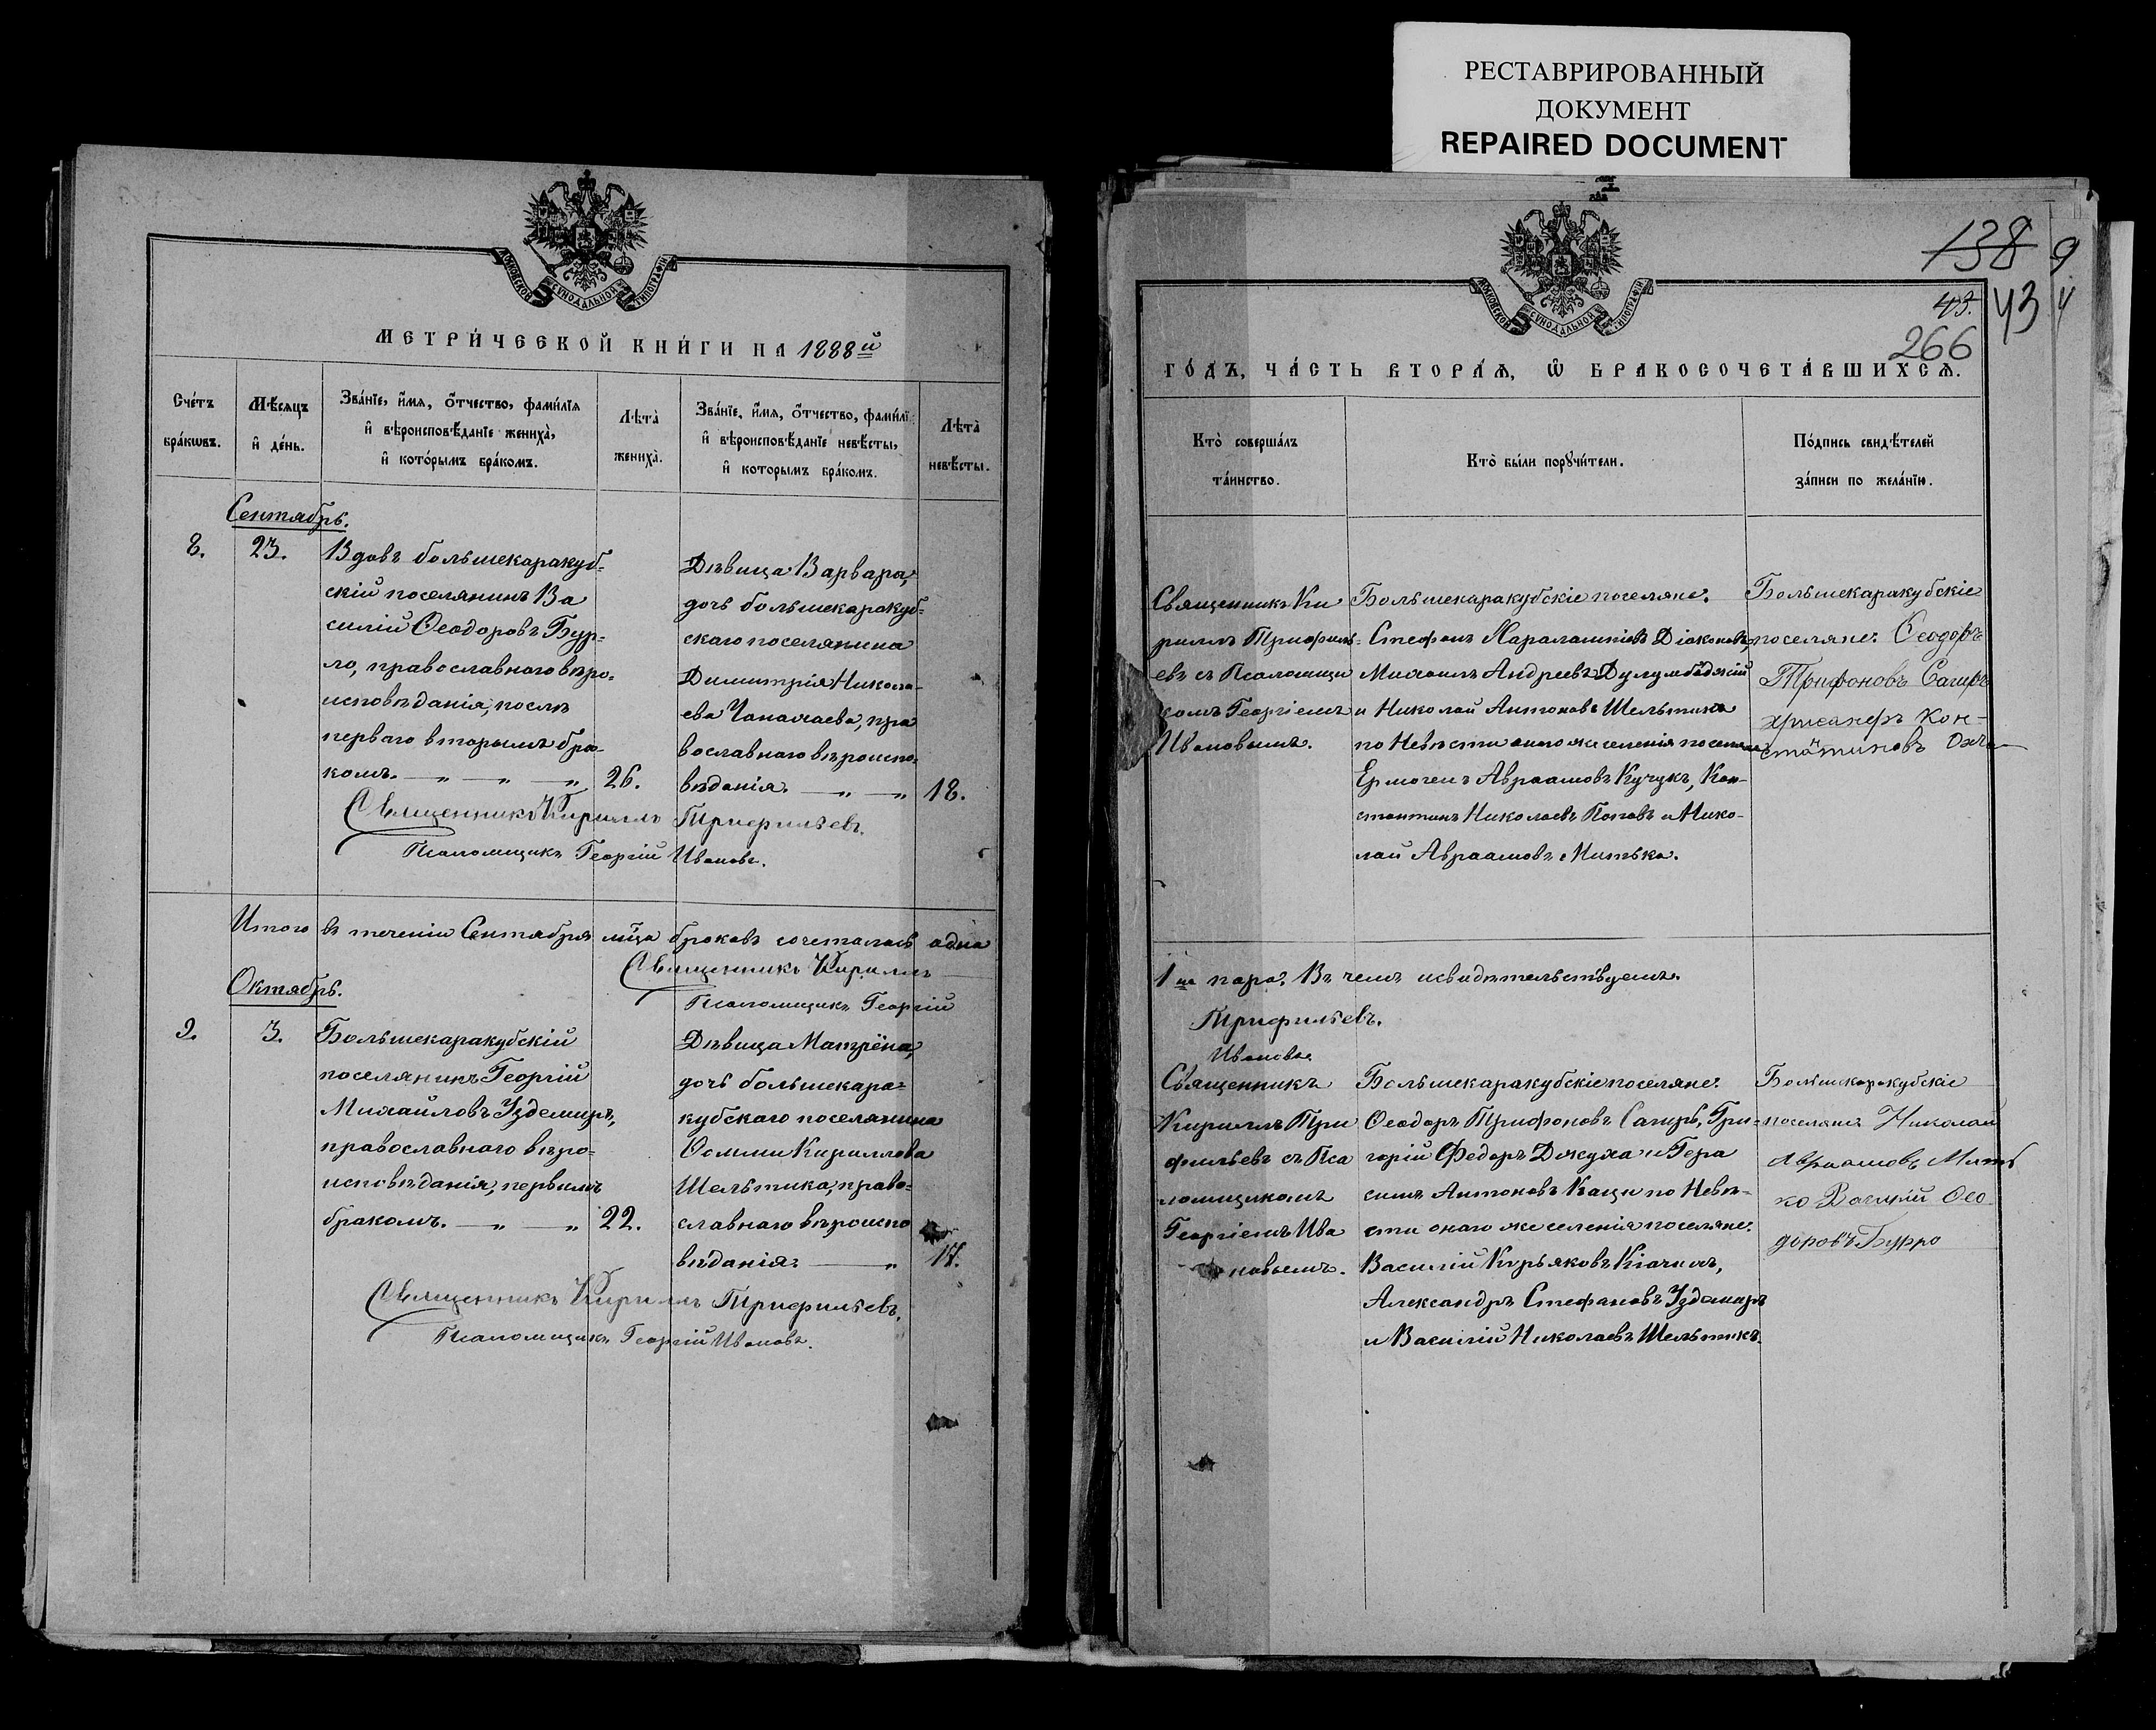 РЕСТАВРИРОВАННЫЙ
ДОКУМЕНТ
REPAIRED DOCUMENT
МОСКОВСКОЙ СѴНОДАЛЬНОЙ ТИПОГРАФІИ
МЕТРИ́ЧЕСКОЙ КНИ́ГИ НА 1888й
Сче́тъ
бра́кѡвъ.
Мѣ́сяцъ
и҆ де́нь.
Зва́нїе, и҆́мѧ, ѻ҆́тчество, фами́лїѧ
и҆ вѣроисповѣ́данїе жениха̀,
и҆ кото́рымъ бра́комъ.
Лѣ́та
жениха̀.
Зва́нїе, и҆́мѧ, ѻ҆́тчество, фами́лїѧ
и҆ вѣроисповѣ́данїе невѣ́сты,
и҆ которымъ бра́комъ.
Лѣ́та
невѣ́сты.
Сентябрь.
8. 23.
Вдовъ большекаракуб-
скій поселянинъ Ва
силій Ѳеодоровъ Бур-
ло, православнаго вѣро-
исповѣданія, послѣ
перваго вторымъ бра-
комъ. — „ — „ — „ 26.
Дѣвица Варвара,
дочь большекаракуб-
скаго поселянина
Димитрія Никола-
ева Чапачаева, пра
вославнаго вѣроиспо-
вѣданія. — „ — „ 18.
Священникъ Кириллъ Трифильевъ.
Псаломщикъ Георгій Ивановъ.
Итого въ теченіи Сентября мца браковъ сочеталась одна
Священникъ Кириллъ
Псаломщикъ Георгій
Октябрь.
9. 3.
Большекаракубскій
поселянинъ Георгій
Михайловъ Уздемиръ,
православнаго вѣро-
исповѣданія, первымъ
бракомъ. — „ — „ 22.
Дѣвица Матрёна,
дочь большекара-
кубскаго поселянина
Кириллова
Шельтика, право-
славнаго вѣроиспо
вѣданія. — „
Священникъ Кириллъ Трифильевъ.
Псаломщикъ Георгій Ивановъ.
138
9
43.
43
4
266
МОСКОВСКОЙ СѴНОДАЛЬНОЙ ТИПОГРАФІИ
ГО́ДЪ, ЧА́СТЬ ВТОРА́Ѧ, Ѽ БРАКОСОЧЕТА́ВШИХСѦ.
Кто̀ соверша́лъ
та́инство.
Кто̀ бы́ли порꙋчи́тели.
По́дпись свидѣ́телей
за́писи по жела́нїю.
Священникъ Ки
риллъ Трифиль-
евъ съ Псаломщи
комъ Георгіемъ
Ивановымъ.
Большекаракубскіе поселяне.
Стефанъ Харалампіевъ Діаконовъ,
Михаилъ Андреевъ
и Николай Антоновъ Шельтика
по Невѣсти онаго же селенія поселяне
Ермогенъ Авраамовъ Кучукъ, Кон-
стантинъ Николаевъ Поповъ и Нико-
лай Авраамовъ Митька.
Большекаракубскіе
поселяне: Ѳеодоръ
Трифоновъ Сагиръ
Кон-
стантиновъ
1на пара. Въ чемъ и свидѣтельствуемъ.
Трифильевъ.
Ивановъ
Священникъ
Кириллъ Три
фильевъ съ Пса
ломщикомъ
Георгіемъ Ива
новымъ.
Большекаракубскіе поселяне.
Ѳеодоръ Трифоновъ Сагиръ, Гри-
горій Федоръ Джуха и Гера
симъ Антоновъ Каци по Невѣ-
сти онаго же селенія поселяне:
Василій Кирьяковъ
Александръ Стефановъ Уздемиръ
и Василій Николаевъ Шельтикъ.
Большекаракубскіе
поселяне Николай
Авраамовъ Мить
ко Василій Ѳео-
доровъ Бурло